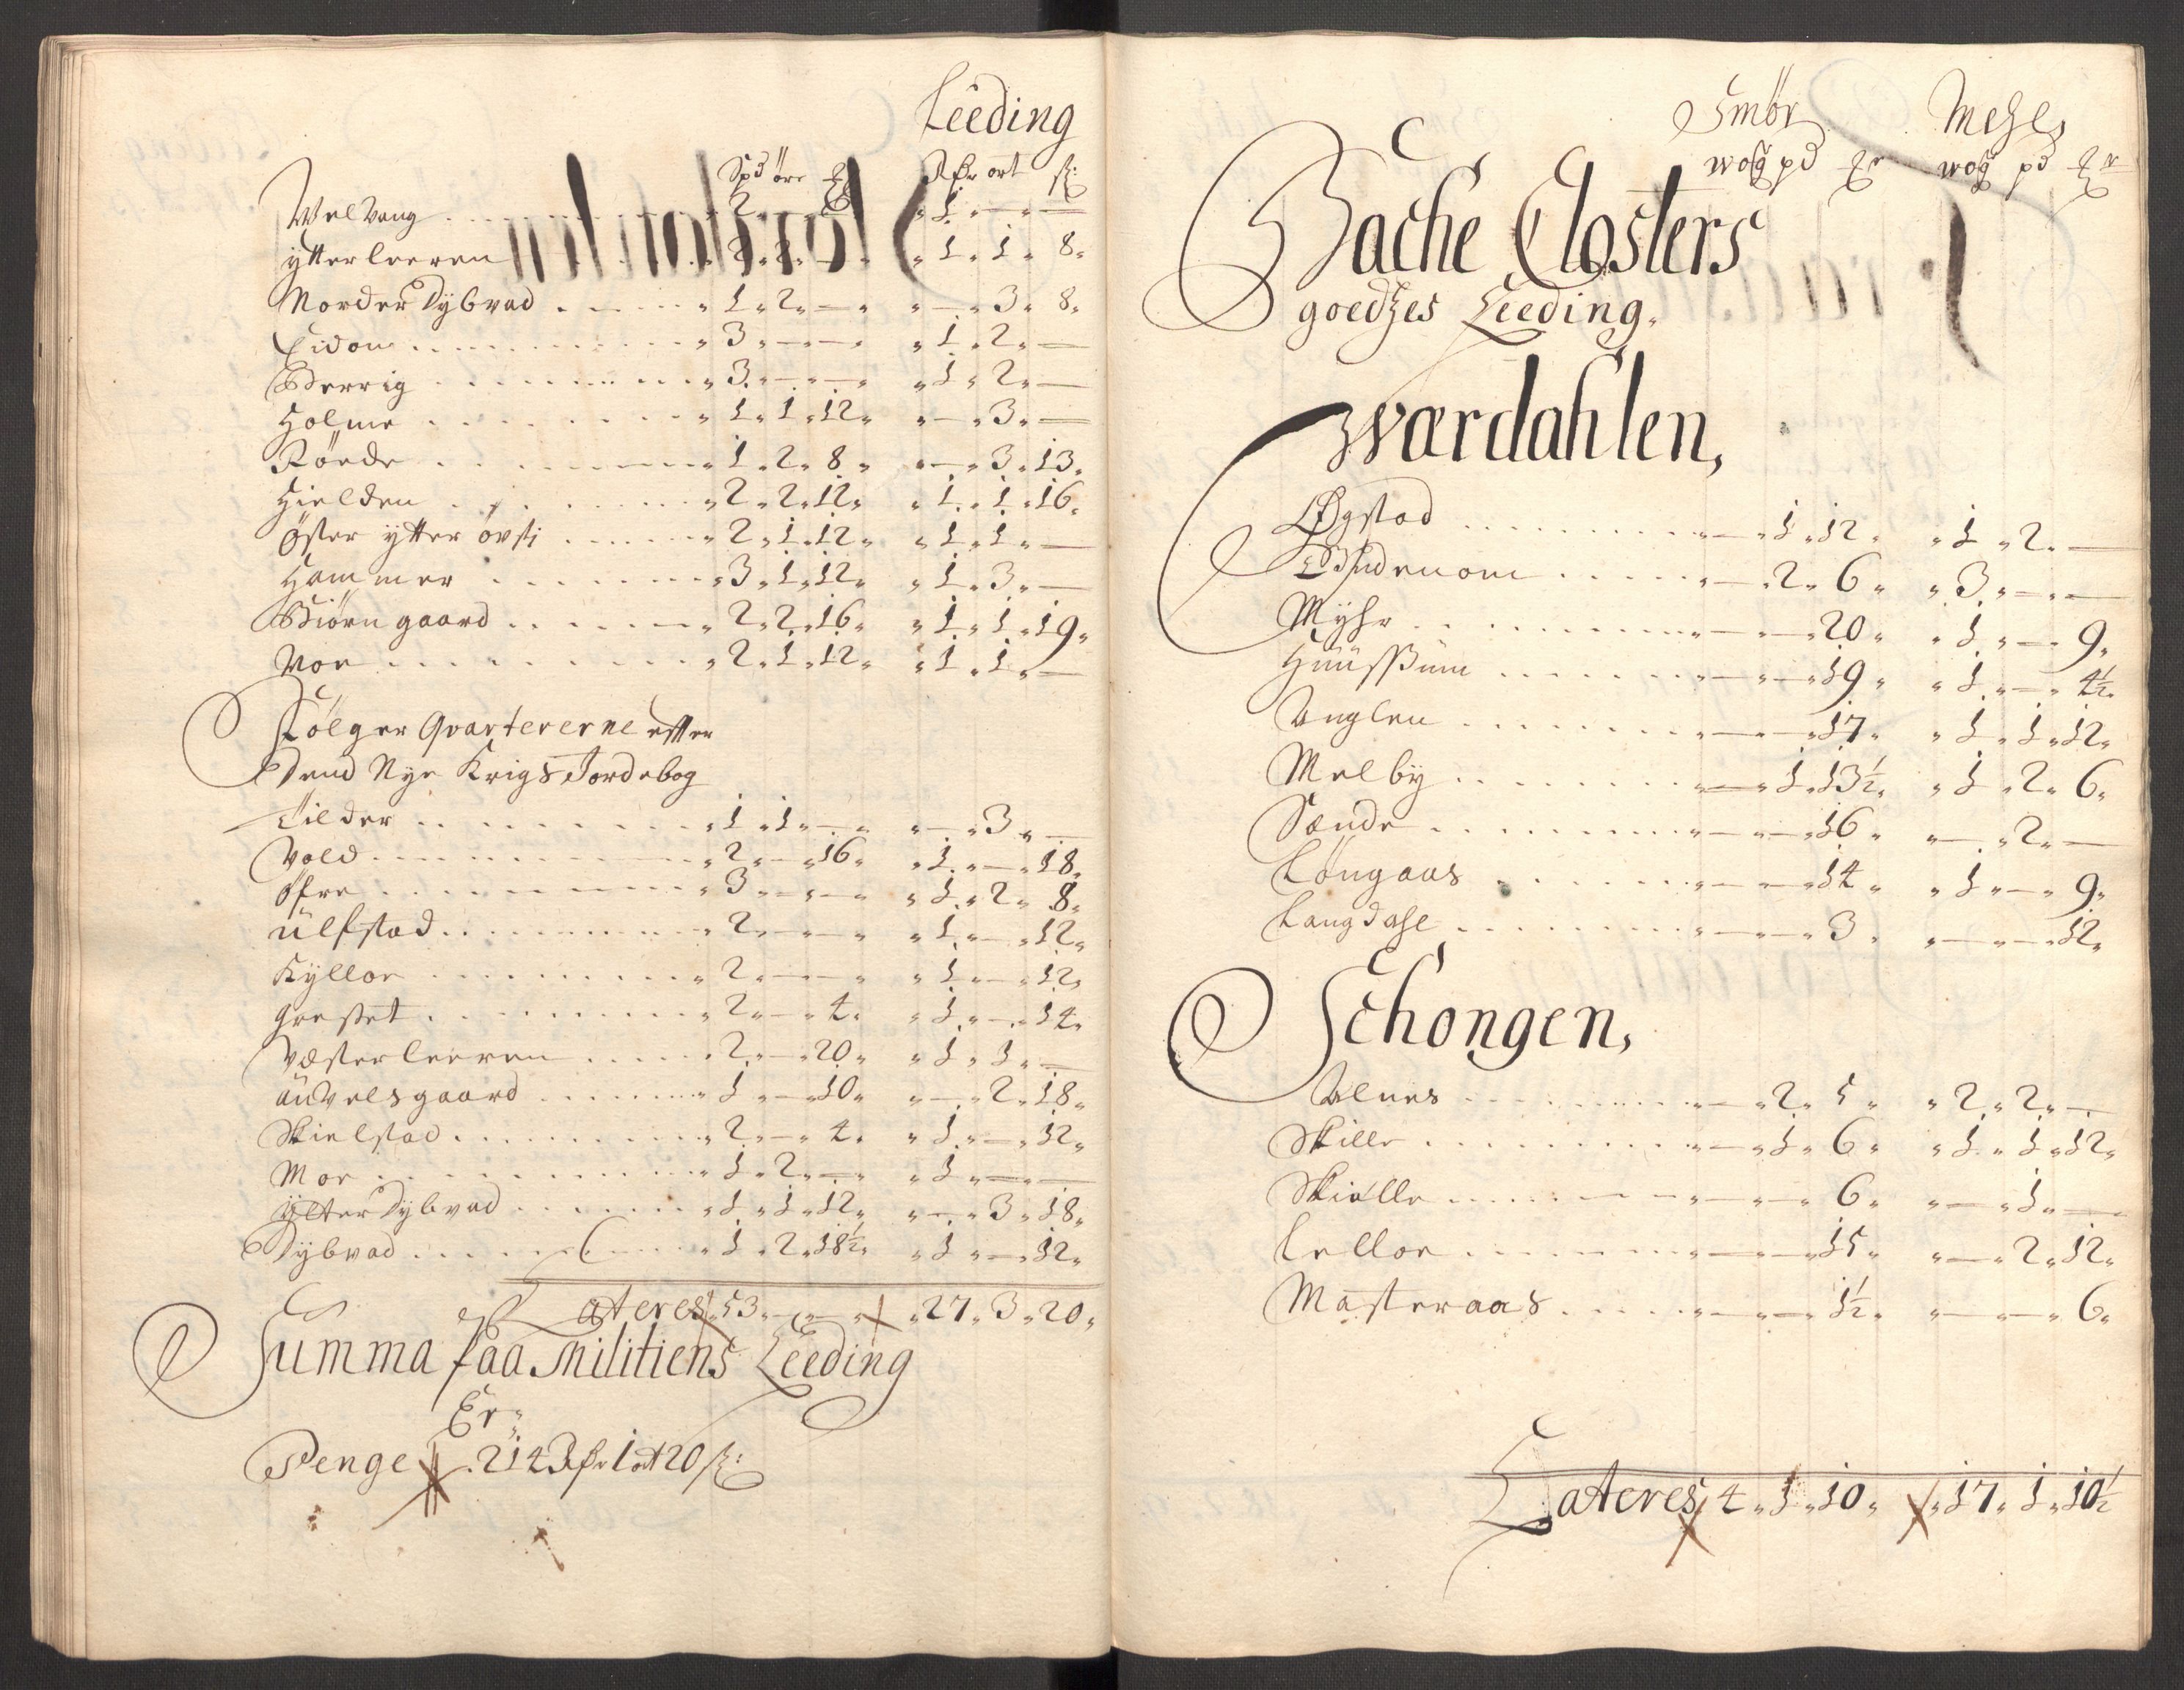 Leeding
Spd öre
Rdr ort ß:
Welvang . . . 2 „ — „ — „ „ 1 „ — „ —
ytterleeren . . . 2 „ 2 „ — „ „ 1 „ 1 „ 8 „
Norder Dybvad . . . „ 1 „ 2 „ — „ „ — „ 3 „ 8 „
Eidom . . . „ 3 „ — „ — „ „ 1 „ 2 „ —
Berrig . . . „ 3 „ — „ — „ „ 1 „ 2 „ —
Holme . . . „ 1 „ 1 „ 12 „ „ — „ 3 „ —
Röede . . . „ 1 „ 2 „ 8 „ „ — „ 3 „ 13 „
Hielden . . . „ 2 „ 2 „ 12 „ „ 1 „ 1 „ 16 „
Öster ytter övsti . . . „ 2 „ 1 „ 12 „ „ 1 „ 1 „ —
Hammer . . . „ 3 „ 1 „ 12 „ „ 1 „ 3 „ —
Biörngaard . . . „ 2 „ 2 „ 16 „ „ 1 „ 1 „ 19 „
Moe . . . „ 2 „ 1 „ 12 „ „ 1 „ 1 „ —
Fölger Qvartererne efter
Dend Nye Krigs Jordebog
Tilder . . . „ 1 „ 1 „ — „ „ — „ 3 „ —
Vold . . . „ 2 „ — „ 16 „ „ 1 „ — „ 18 „
Öfre . . . „ 3 „ — „ — „ „ 1 „ 2 „ 8 „
ülfstad . . . „ 2 „ — „ — „ „ 1 „ — „ 12 „
Kylloe . . . „ 2 „ — „ — „ „ 1 „ — „ 12 „
Gresset . . . „ 2 „ — „ 4 „ „ 1 „ — „ 14 „
Væsterleeren . . . „ 2 „ — „ 20 „ „ 1 „ 1 „ —
auvelsgaard . . . „ 1 „ — „ 10 „ „ — „ 2 „ 18 „
Skielstad . . . „ 2 „ — „ 4 „ „ 1 „ — „ 12 „
Moe . . . „ 1 „ 2 „ — „ „ 1 „ — „ —
Ytter Dybvad . . . „ 1 „ 1 „ 12 „ „ — „ 3 „ 18 „
Dybvad . . . „ 1 „ 2 „ 18½ „ „ 1 „ — „ 12 „
Lateres „ 53 „ — „ — „ „ 27 „ 3 „ 20 „
Summa paa Militiens Leeding
Er „
Penge . 214 Rdr 1 ort 20 ß:
Smör Mehl
wog pd wog pd
Bache Closters
goedzes Leeding.
Wærdahlen,
Øgstad . . . „ — „ 1 „ 12 „ „ 1 „ 2 „ —
. . . „ — „ 2 „ 6 „ „ 3 „ — „ —
Myhr . . . „ — „ — „ 20 „ „ 1 „ — „ 9 „
Huussum . . . „ — „ — „ 19 „ „ 1 „ — „ 4½
Unglen . . . „ — „ — „ 17 „ „ 1 „ 1 „ 12 „
Melby . . . „ — „ 1 „ 13½ „ „ 1 „ 2 „ 6 „
Sænde . . . „ — „ — „ 16 „ „ — „ 2 „ —
Löngaas . . . „ — „ — „ 14 „ „ 1 „ — „ 9 „
Langdahl . . . „ — „ — „ 3 „ „ — „ — „ 12 „
Schongen,
Alnes . . . „ — „ 2 „ 5 „ „ 2 „ 2 „ —
Skille . . . „ — „ 1 „ 6 „ „ 1 „ 1 „ 12 „
Skielle . . . „ — „ — „ 6 „ „ — „ 1 „ —
Lelloe . . . „ — „ — „ 15 „ „ — „ 2 „ 12 „
Masteraas . . . „ — „ — „ 1½ „ „ — „ — „ 6 „
Lateres „ 4 „ 1 „ 10 „ „ 17 „ 1 „ 10½